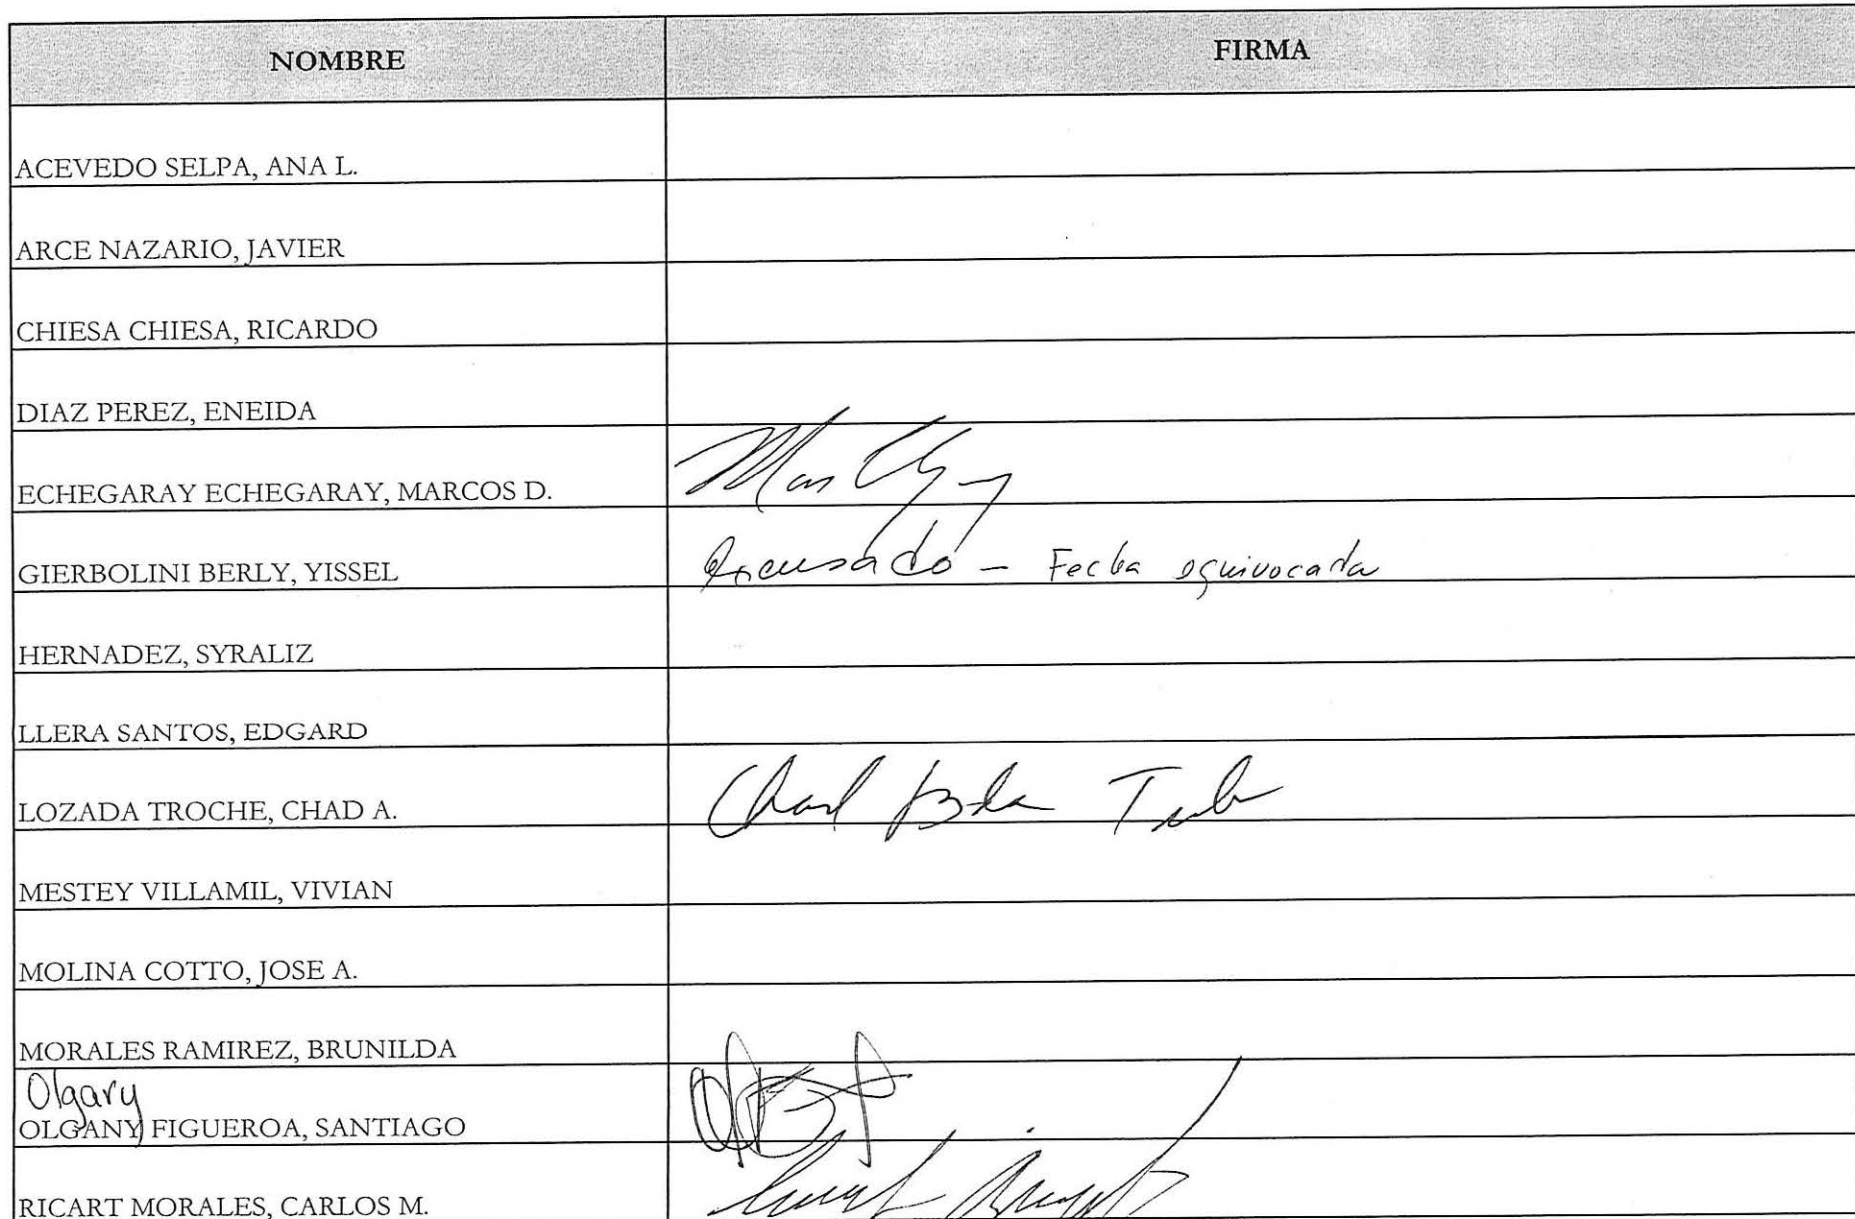 NOMBRE FIRMA
ACEVEDO SELPA, ANA L.
ARCE NAZARIO, JAVIER
CHIESA CHIESA, RICARDO
DIAZ PEREZ, ENEIDA
ECHEGARAY ECHEGARAY, MARCOS D.
GIERBOLINI BERLY, YISSEL Excusado - Fecha equivocada
HERNADEZ, SYRALIZ
LLERA SANTOS, EDGARD
LOZADA TROCHE, CHAD A. Chad
MESTEY VILLAMIL, VIVIAN
MOLINA COTTO, JOSE A.
MORALES RAMIREZ, BRUNILDA
Olgary
OLGANY FIGUEROA, SANTIAGO
RICART MORALES, CARLOS M.